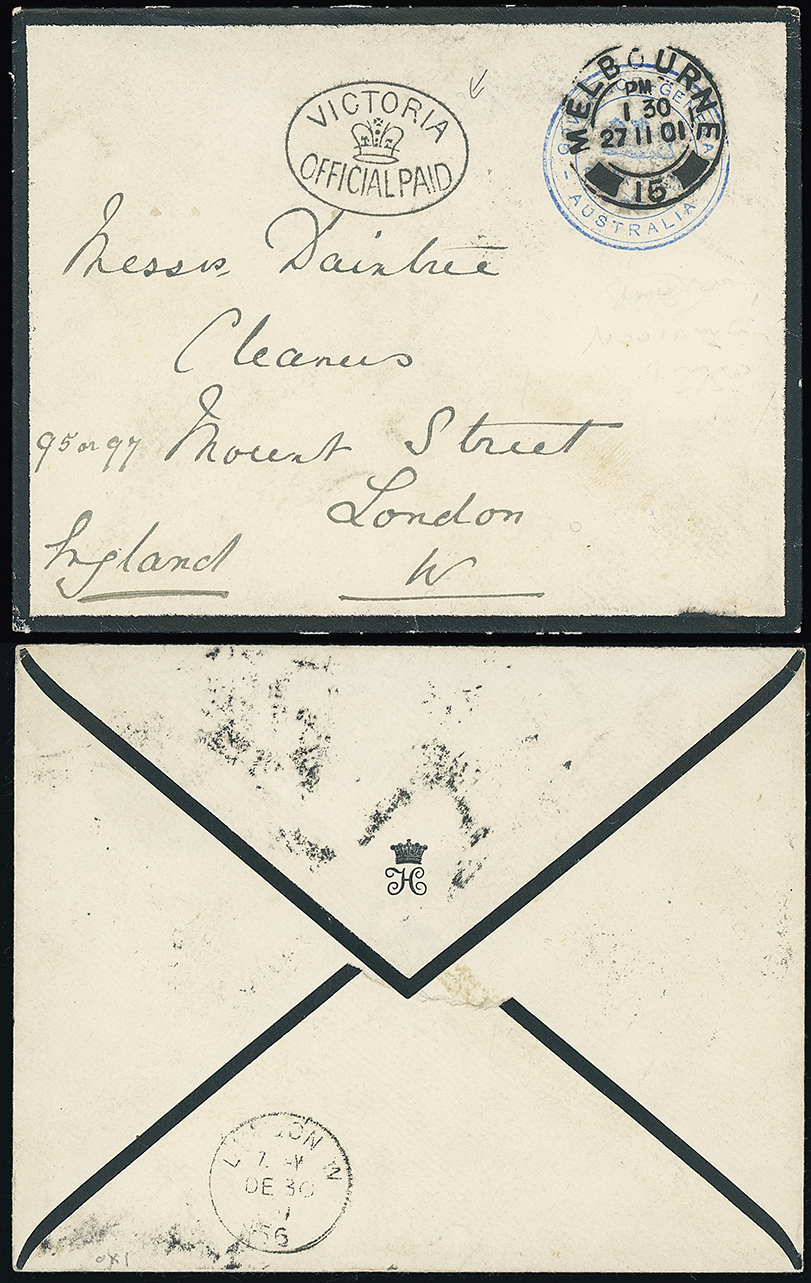 VICTORIA
OFFICIAL PAID
MELBOURNE
PM
1 30
27 11 01
15
AUSTRALIA
Messrs Daintree
Cleaners
95 or 97 Mount Street
London
England W
H
LONDON W
DE 30
56
OX1